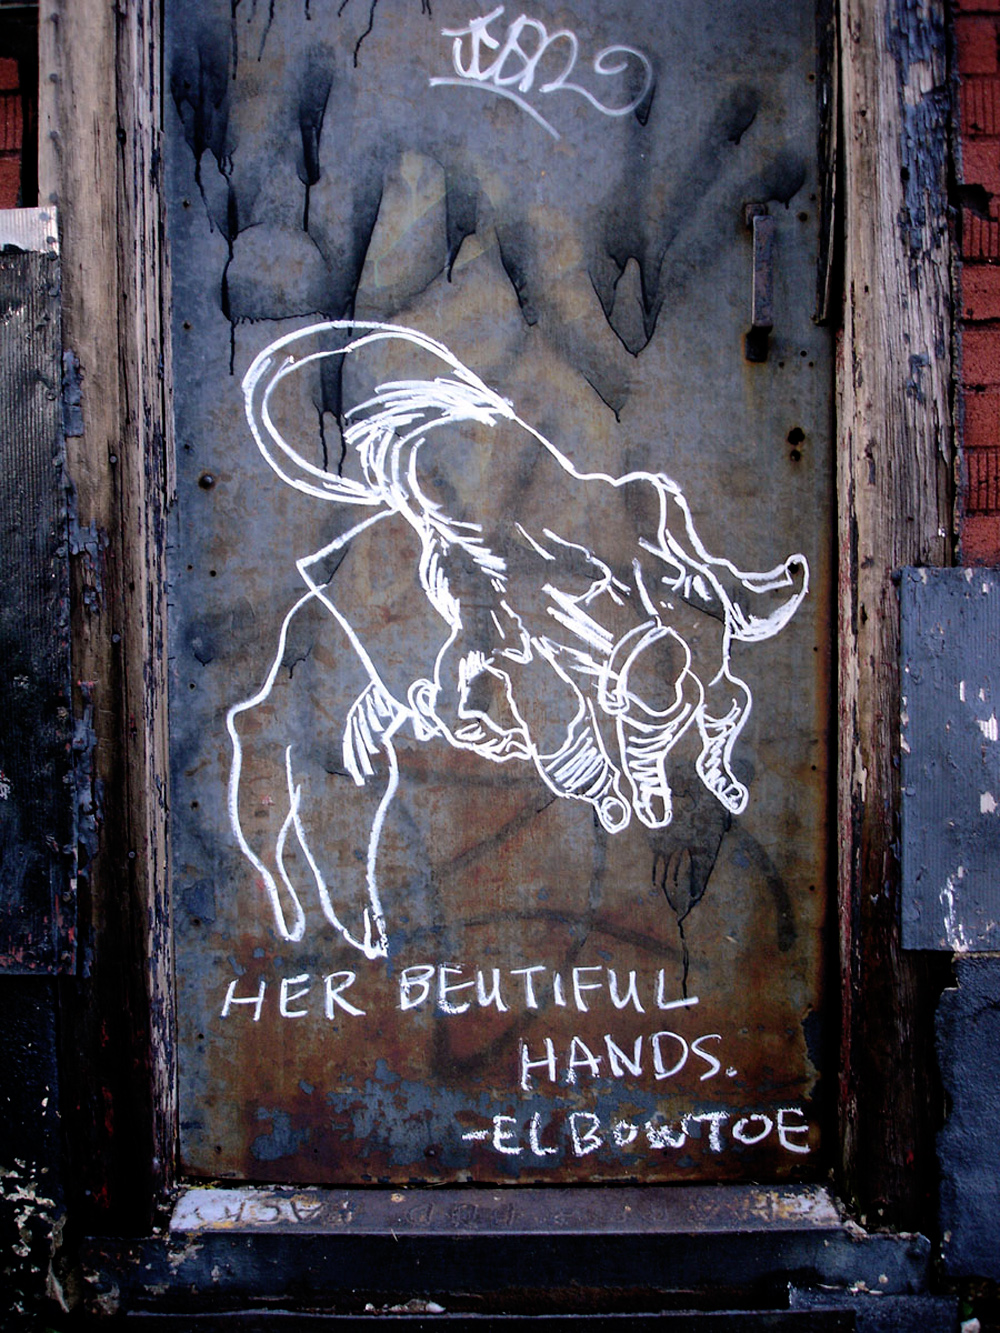 HER BEUTIFUL
HANDS.
-ELBOWTOE